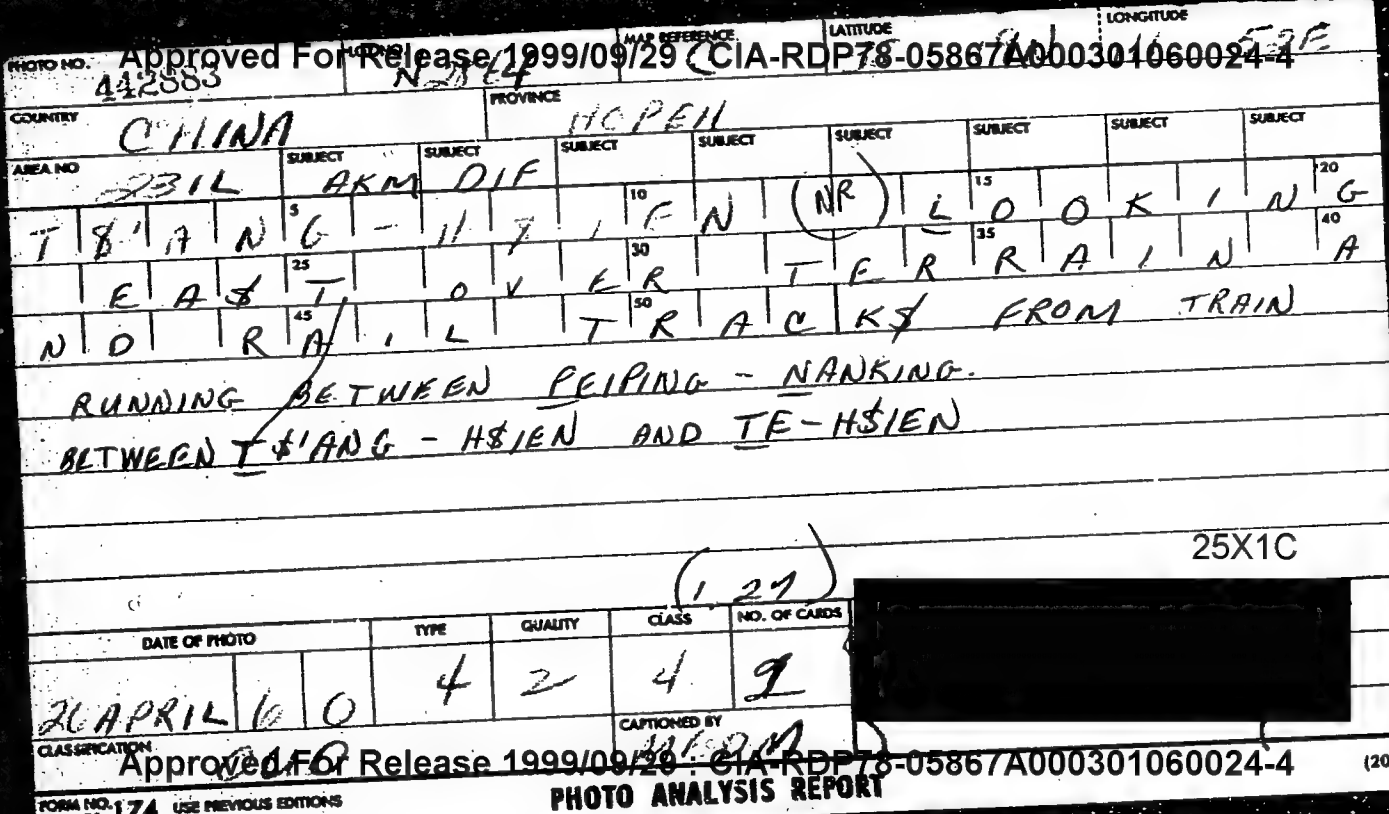 PHOTO NO. MAP REFERENCE LATITUDE LONGITUDE
Approved For Release 1999/09/29 : CIA-RDP78-05867A000301060024-4
442883
COUNTRY CHINA PROVINCE HOPEH
AREA NO SUBJECT SUBJECT SUBJECT SUBJECT SUBJECT SUBJECT SUBJECT SUBJECT
231L AKM DIF
5 10 15 20
T$'ANG-H$IEN (NR) LOOKING
25 30 35 40
EA$T OVER TERRAIN A
45 50
ND RAIL TRACK$ FROM TRAIN
RUNNING BETWEEN PEIPING - NANKING.
BETWEEN T$'ANG - H$IEN AND TE-H$IEN
25X1C
(1.27)
DATE OF PHOTO TYPE QUALITY CLASS NO. OF CARDS
26 APRIL 60 4 2 4 9
CAPTIONED BY
CLASSIFICATION
Approved For Release 1999/09/29 : CIA-RDP78-05867A000301060024-4 (20
FORM NO. 174 USE PREVIOUS EDITIONS PHOTO ANALYSIS REPORT